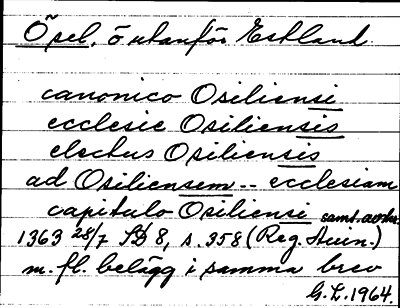 Ösel, ö utanför Estland
canonico Osiliensi
ecclesie Osiliensis
electus Osiliensis
ad Osiliensem -- ecclesiam
capitulo Osiliensi samt. avskr.
1363 28/7 SD 8, s. 358 (Reg. Auin.)
m. fl. belägg i samma brev
G. L. 1964.